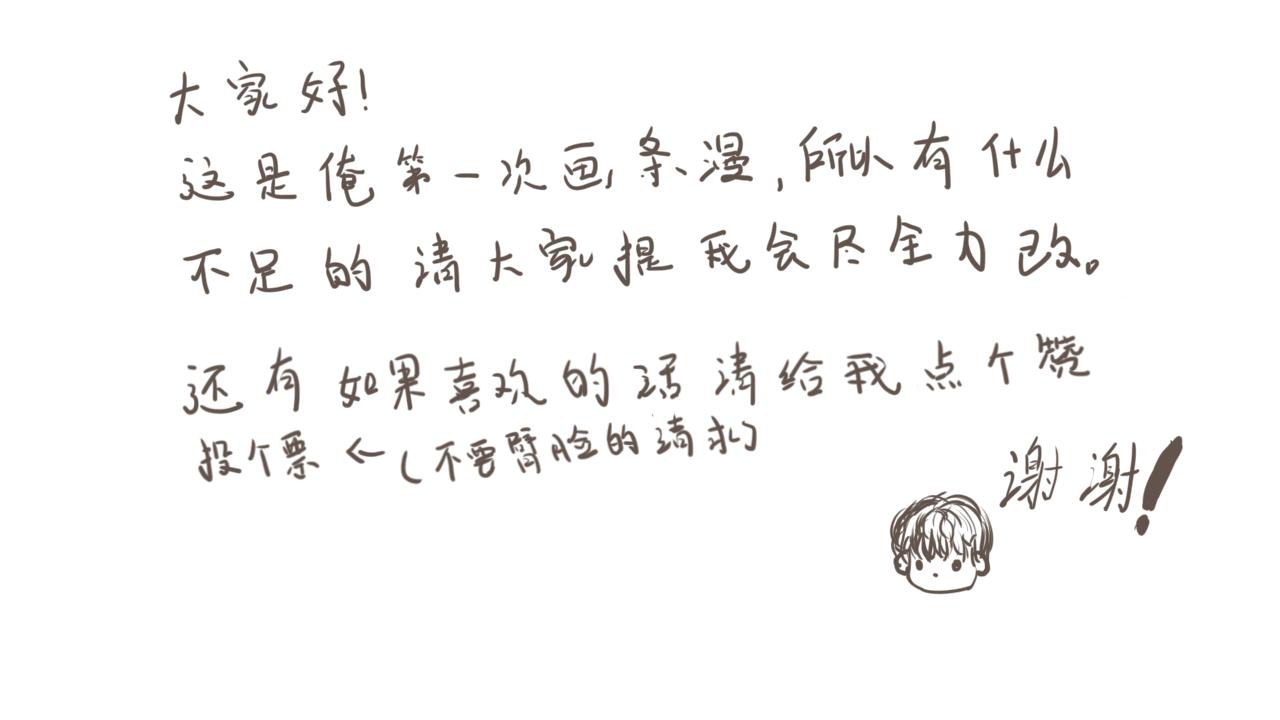 大家好!
这是俺第一次画条漫,所以有什么
不足的请大家提我会尽全力改。
还有如果喜欢的话请给我点个赞
投个票←(不要臂脸的请求)
谢谢!